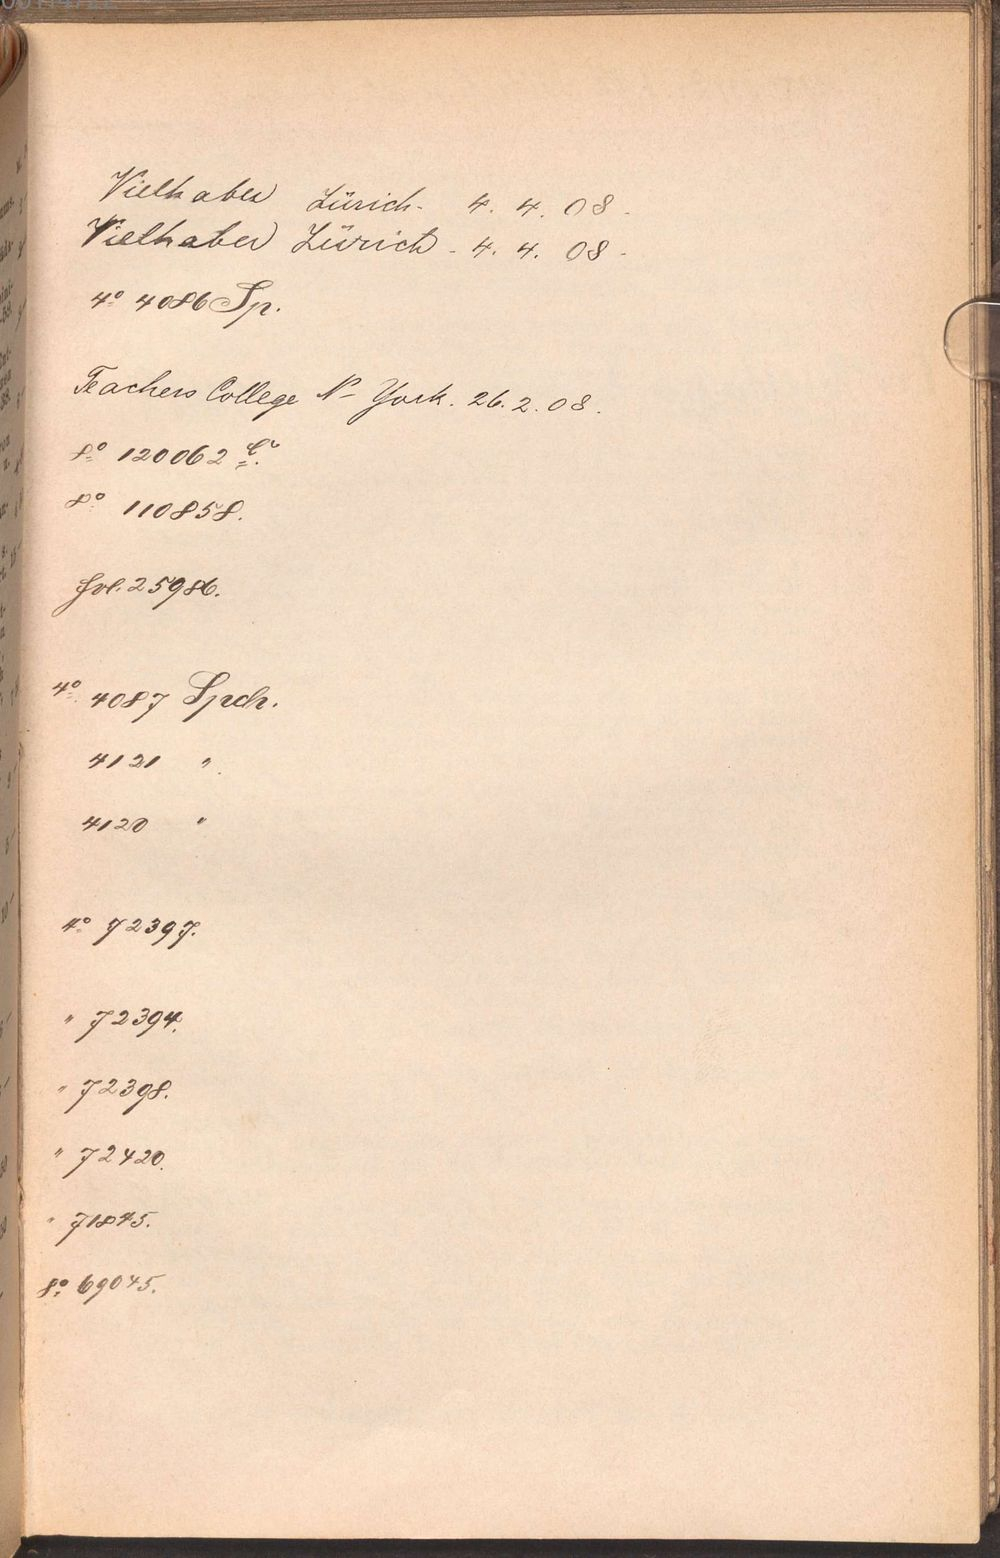 Vielhaber Zürich. 4. 4. 08.
Vielhaber Zürich - 4. 4. 08.
4º 4086 Sp.
Teachers College N- York. 26. 2. 08.
8º 120062 C.
8º 110858.
fol. 25986.
4º 4087 Spch.
4121 "
4120 "
4º 72397.
" 72394.
" 72398.
" 72420.
" 71845.
8º 69045.